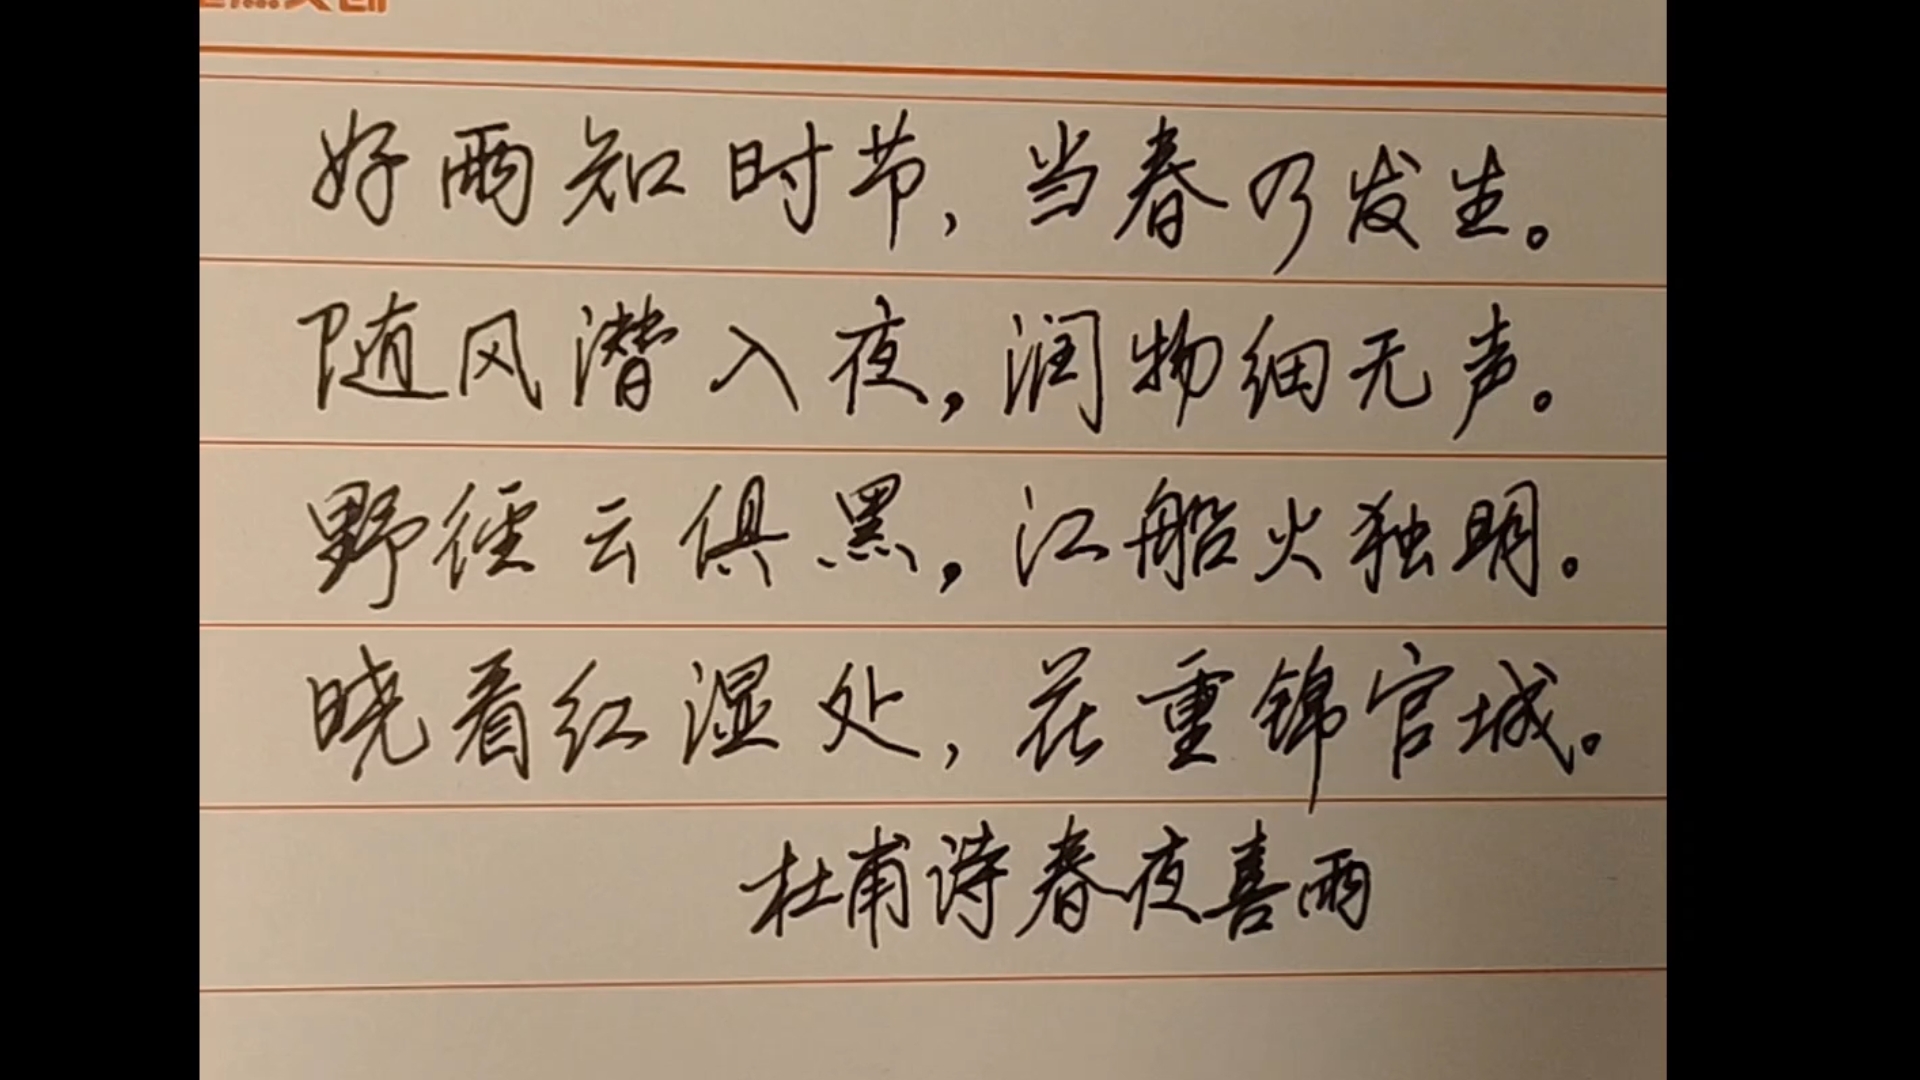 好雨知时节，当春乃发生。
随风潜入夜，润物细无声。
野径云俱黑，江船火独明。
晓看红湿处，花重锦官城。
杜甫诗春夜喜雨